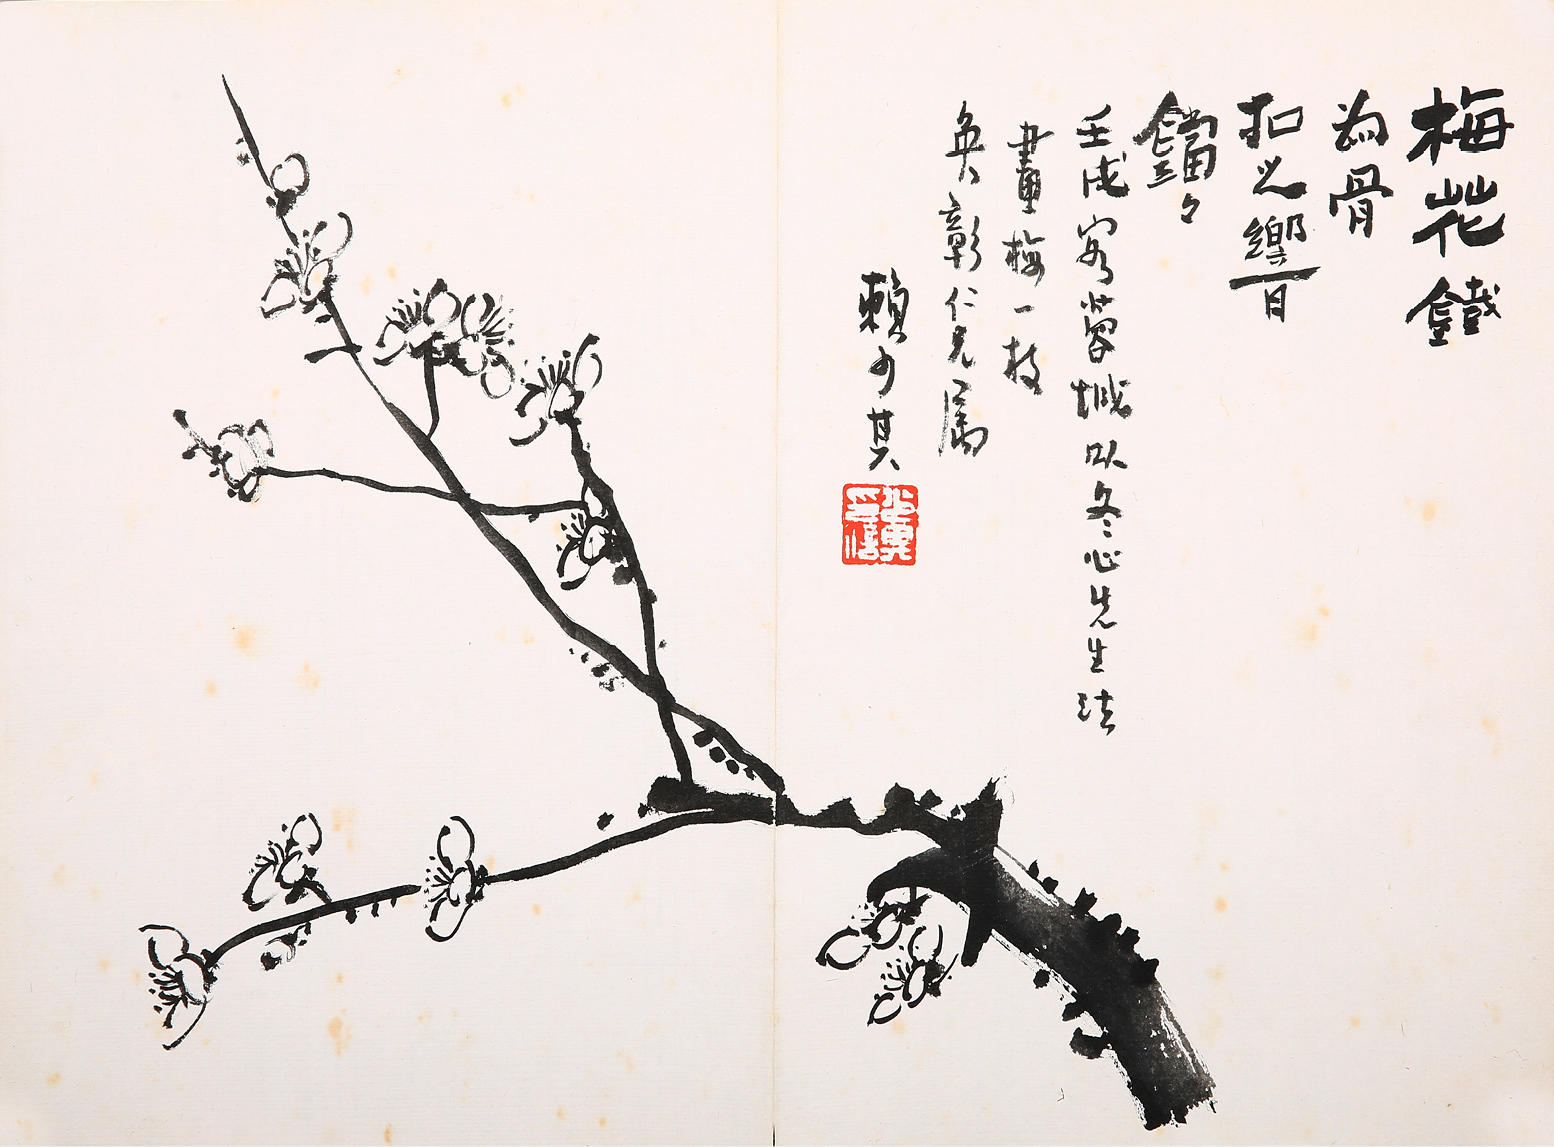 梅花鐵
為骨
扣之響
鐺々
壬戌客蓉城以冬心先生法
畫梅一枝
奐彰仁兄属
賴少其